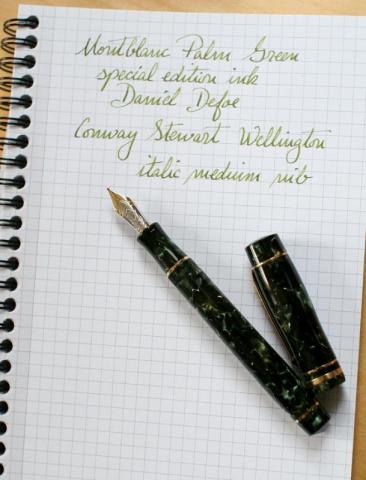 Montblanc Palm Green
special edition ink
Daniel Defoe
Conway Stewart Wellington
italic medium nib